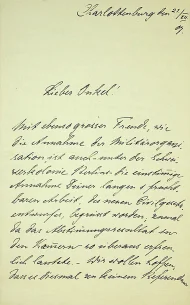 Charlottenburg den 21/XII 07.
Lieber Onkel!
Mit ebenso grosser Freude, wie
die Annahme der Militärorgani-
sation ist auch in der Schwei-
zerkolonie Berlins die einstimmige
Annahme Deiner langen &
baren Arbeit, des neuen Civilgesetz-
entwurfes, begrüsst worden, zumal
da das Abstimmungsresultat in
den Kammern so überaus erfreu-
lich lautete. Wir wollen hoffen,
dass es diesmal von keinem Referendum